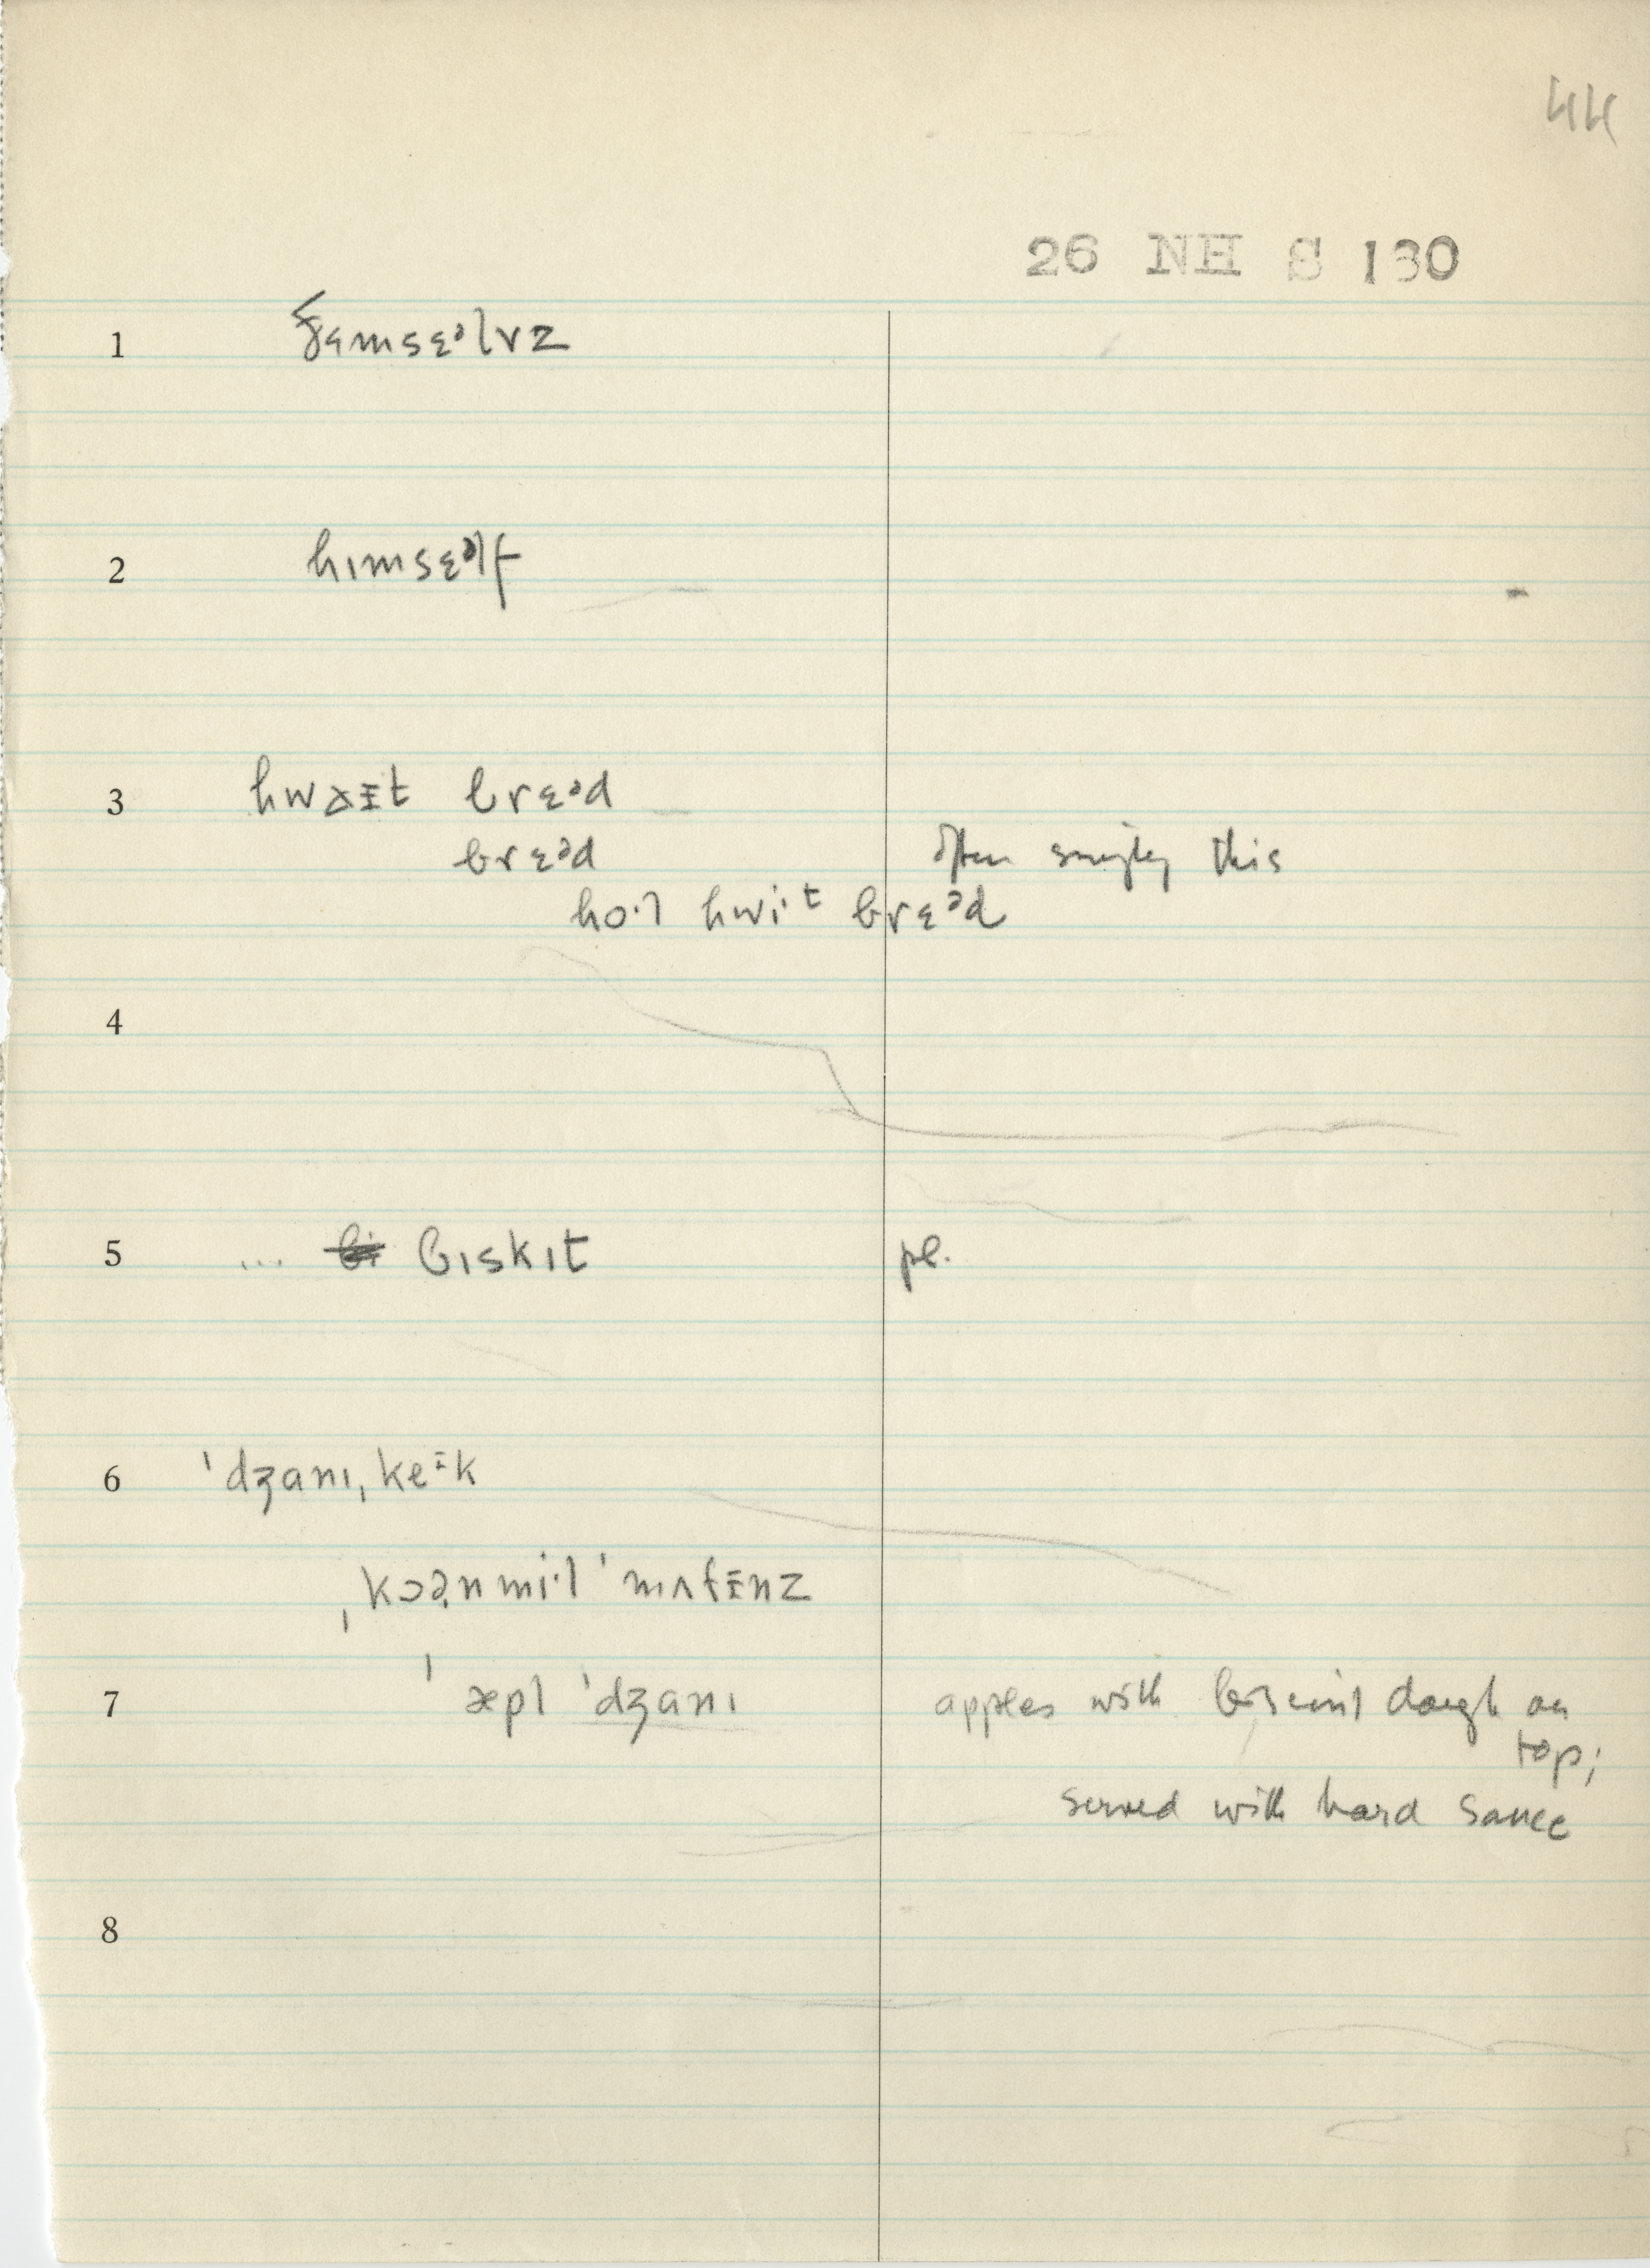 44
26 NH S 130
1 ðɛmsɛᵊlvz
2 hɪmsɛᵊlf
3 hwaɪ̵t brɛᵊd
brɛᵊd often simply this
ho·l hwi·t brɛᵊd
4
5 ... biskɪt pl.
6 ˈdʒanɪˌkeɪ̵k
ˌkɔə̣nmi·l ˈmʌfɪ̵nz
7 ˈæpl ˈdʒanɪ apples with biscuit dough on
top;
served with hard sauce
8